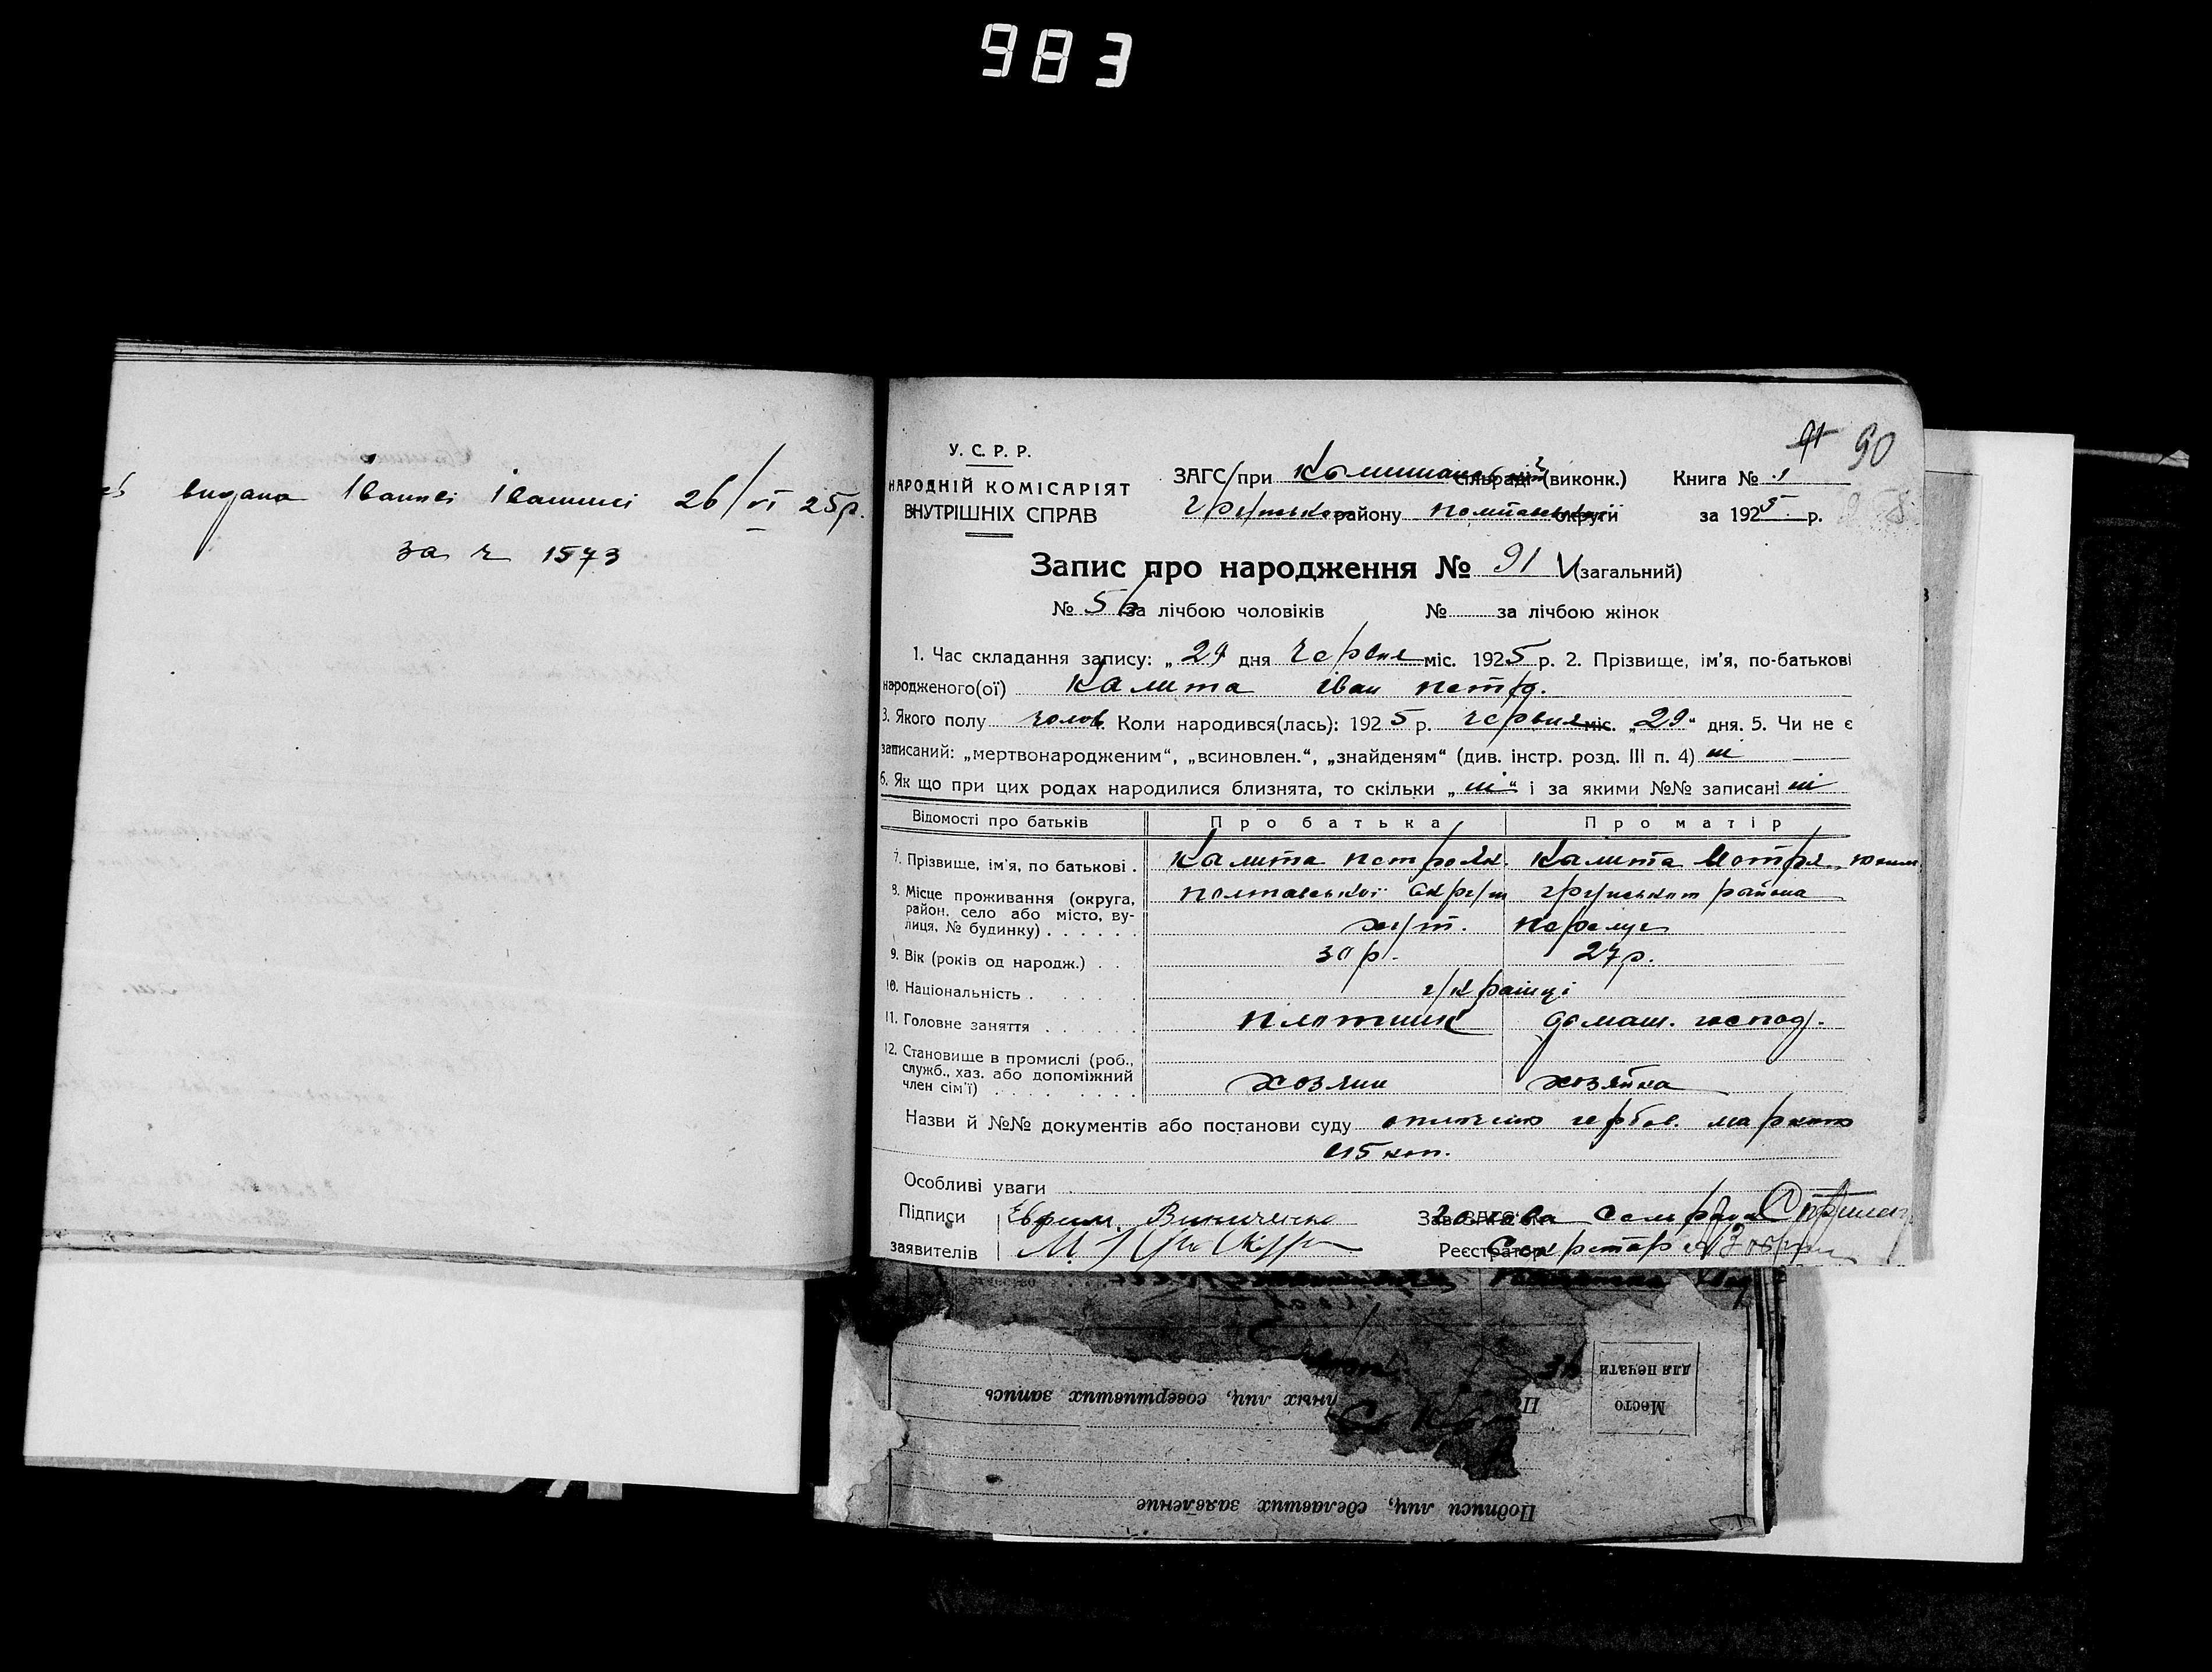 983
видана Іванові Івашині 26/VI 25р.
за ч 1573
91 90
У. С. Р. Р.
НАРОДНІЙ КОМІСАРІЯТ
ВНУТРІШНІХ СПРАВ
ЗАГС/при сільраді (виконк.) Книга № 1
району округи за 1925 р.
Запис про народження № 91 (загальний)
№ 56 за лічбою чоловіків № за лічбою жінок
1. Час складання запису: „ 29 дня Червня міс. 1925 р. 2. Прізвище, ім'я, по-батькові
народженого(ої) Калита Іван Петр.
3. Якого полу чолов. Коли народився(лась): 1925 р. червня міс. „29“ дня. 5. Чи не є
записаний: „мертвонародженим“, „всиновлен.“, „знайденям“ (див. інстр. розд. III п. 4) ні
6. Як що при цих родах народилися близнята, то скільки „ ні “ і за якими №№ записані ні
Відомості про батьків Про батька Про матір
7. Прізвище, ім'я, по батькові . Калита Петро Як. Калита Мотря
8. Місце проживання (округа, район, село або місто, вулиця, № будинку) . . . . . . Полтавської Округи Грунського района
хут.
9. Вік (років од народж.) . . 30 р. 27 р.
10. Національність . . . . . . українці
11. Головне заняття . . . . . . плотник домаш. господ.
12. Становище в промислі (роб., служб., хаз. або допоміжний член сім'ї) . . . . . . . . . хозяин хозяйка
Назви й №№ документів або постанови суду оплачено гербов. маркою
15 коп.
Особливі уваги
Підписи Зав. ЗАГС'ом Голова Сельради
заявителів Реєстратор Секретар
Место
для печати
лиц, совершивших запись
Подписи лиц, сделавших заявление